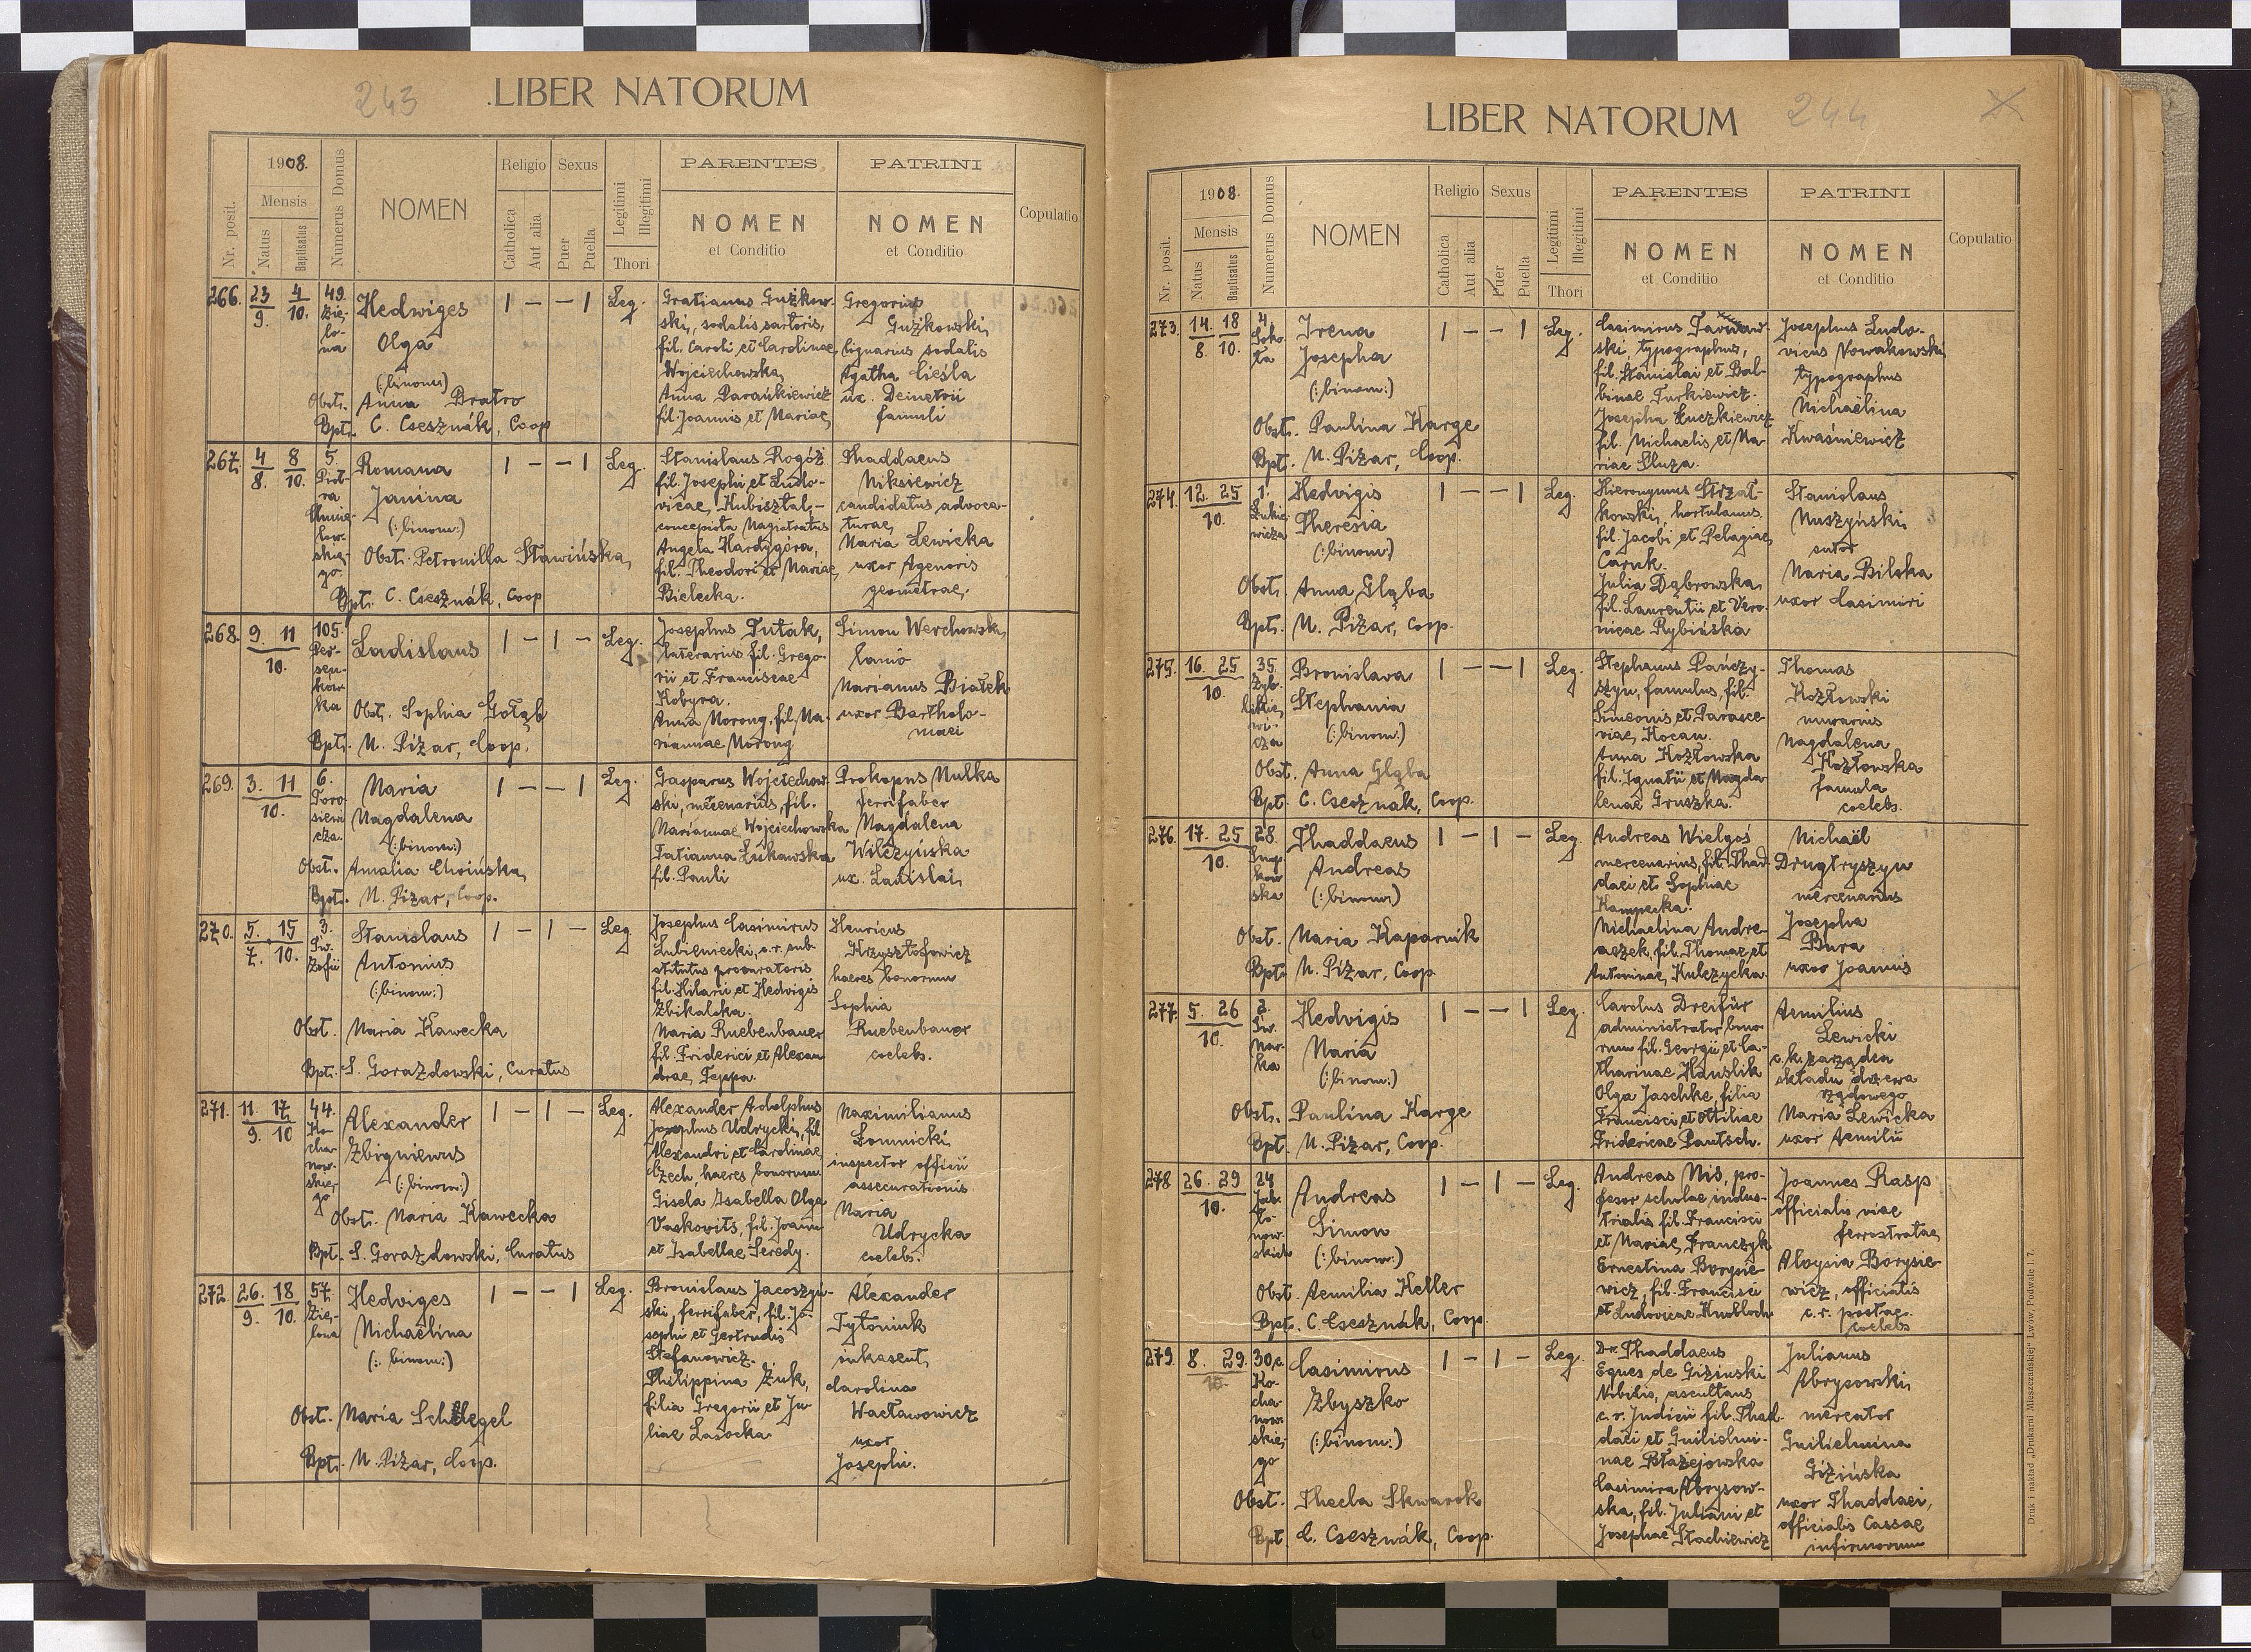 243
LIBER NATORUM
Nr. posit.
1908.
Mensis
Natus
Baptisatus
Numerus Domus
NOMEN
Religio
Catholica
Aut alia
Sexus
Puer
Puella
Legitimi
Illegitimi
Thori
PARENTES
NOMEN
et Conditio
PATRINI
NOMEN
et Conditio
Copulatio
266. 23/9. 4/10. 49. Zie-
lo-
na
Hedwiges
Olga
(:binom:)
Obst. Anna Bratro
Bpt. C. Csesznák, Coop
1 — — 1 Leg.
Gratianus Gużkow-
ski, sodalis sartoris,
fil. Caroli et Carolinae
Wojciechowska,
Anna Parańkiewicz
fil. Joannis et Mariae
Gregorius
Gużkowski,
lignarius sodalis
Agatha Cieśla
ux. Demetrii
famuli
267. 4/8. 8/10. 5.
Piot-
ra
Chmie-
low-
skie-
go.
Romana
Janina
(:binom:)
Obst. Petronilla Sławińska,
Bpt. C. Csesznák, Coop
1 — — 1 Leg.
Stanislaus Rogóż
fil. Josephi et Ludo-
vicae, Kubisztal,—
concepista Magistratus
Angela Hardygóra,
fil. Theodori et Mariae,
Bielecka.
Thaddaeus
Niksiewicz
candidatus advoca-
turae,
Maria Lewicka
uxor Agenoris
geometrae,
268. 9. 11
10.
105.
Per-
sen-
kow-
ka
Ladislaus
Obst. Sophia Gołąb
Bpt. N. Piżar, Coop.
1 — 1 — Leg.
Josephus Dutak,
laterarius fil. Grego-
rii et Franciscae
Kobyra.
Anna Morong, fil. Ma-
riannae Morong
Simon Werchowski,
lanio
Marianus Białek
uxor Bartholo-
maei
269. 3. 11
10.
6.
Toro-
siewi-
cza.
Maria
Magdalena
(:binom:)
Obst. Amalia Choińska,
Bpt. N. Piżar, Coop.
1 — — 1 Leg.
Gasparus Wojciechow-
ski, mercenarius, fil.
Mariannae Wojciechowska
Tatianna Łukawska
fil. Pauli
Prokopus Mulka
ferrifaber
Magdalena
Wilczyńska
ux. Ladislai,
270. 5. 15
7. 10.
3.
Św.
Zofii
Stanislaus
Antonius
(:binom:)
Obst. Maria Kawecka
Bpt. S. Gorazdowski, Curatus
1 — 1 — Leg.
Josephus Casimirus
Lubieniecki, c.r. sub-
stitutus procuratoris
fil. Hilarii et Hedvigis
Zbikalska.
Maria Ruebenbauer
fil. Friderici et Alexan
drae, Teppa.
Henricus
Krzysztofowicz
haeres bonorum
Sophia
Ruebenbauer
coelebs.
271. 11. 17
9. 10
44.
Ko-
cha-
now-
skie-
go
Alexander
Zbigniewus
(:binom:)
Obst. Maria Kawecka
Bpt. S. Gorazdowski, Curatus
1 — 1 — Leg.
Alexander Adolphus
Josephus Udrycki, fil
Alexandri et Carolinae
Czech, haeres bonorum.
Gisela Isabella Olga
Vaskovits, fil. Joann
et Isabellae Seredy.
Maximilianus
Łomnicki,
inspector officii
assecurationis
Maria
Udrycka
coelebs.
272. 26. 18
9. 10.
57.
Zie-
lona
Hedviges
Michaëlina
(:binom:)
Obst. Maria Schlegel
Bpt. N. Piżar, Coop.
1 — — 1 Leg.
Bronislaus Jacoszyń-
ski, ferrifaber, fil. Jo-
sephi et Gertrudis
Stefanowicz.
Philippina Żuk,
filia Gregorii et Ju-
liae Lasocka
Alexander
Tytoniuk
inkasent,
Carolina
Wacławowicz
uxor
Josephi.
LIBER NATORUM
244
Nr. posit.
1908.
Mensis
Natus
Baptisatus
Numerus Domus
NOMEN
Religio
Catholica
Aut alia
Sexus
Puer
Puella
Legitimi
Illegitimi
Thori
PARENTES
NOMEN
et Conditio
PATRINI
NOMEN
et Conditio
Copulatio
273. 14. 18
8. 10.
4
Soko-
ła
Irena
Josepha
(:binom:)
Obst. Paulina Karge
Bpt. N. Piżar, Coop.
1 — — 1 Leg.
Casimirus
ski, typographus,
fil. Stanislai et Bal-
binae Turkiewicz.
Josepha Łuczkiewicz
fil. Michaelis, et Ma-
riae Pluza.
Josephus Ludo-
vicus Nowakowski
typographus
Michaëlina
Kwaśniewicz
274. 12. 25
10.
1.
Łukie-
wicza
Hedvigis
Theresia
(:binom:)
Obst. Anna Głąba
Bpt. N. Piżar, Coop.
1 — — 1 Leg.
Hieronymus Strzał-
kowski, hortulanus.
fil. Jacobi et Pelagiae,
Caruk.
Julia Dąbrowska,
fil. Laurentii et Vero-
nicae Rybińska
Stanislaus
Muszyński,
sutor
Maria Bilska
uxor Casimiri
275. 16. 25
10.
35.
Zyb-
likie-
wi-
cza
Bronislava
Stephania
(:binom:)
Obst. Anna Głąba
Bpt. C. Csesznák, Coop.
1 — — 1 Leg.
Stephanus Pańczy-
szyn, famulus, fil.
Simeonis et Parasce-
viae, Kocan.
Anna Kozłowska
fil. Ignatii et Magda
lenae Gruszka.
Thomas
Kozłowski
murarius
Magdalena
Kozłowska
famula
coelebs.
276. 17. 25
10.
28.
Snop-
kow-
ska
Thaddaeus
Andreas
(:binom:)
Obst. Maria Kaparnik
Bpt. N. Piżar, Coop
1 — 1 — Leg.
Andreas Wielgoś
mercenarius, fil. Thad-
daei et Sophiae
Kampecka.
Michaelina Andre-
aszek, fil. Thomae et
Antoninae, Kulczycka.
Michaël
Drugtryszyn
mercenarius
Josepha
Bura
uxor Joannis
277. 5. 26
10.
2.
Św.
Mar-
ka
Hedvigis
Maria
(:binom:)
Obst. Paulina Karge
Bpt. N. Piżar, Coop.
1 — — 1 Leg.
Carolus Dreifür
administrator bono-
rum fil. Georgii et Ca-
tharinae Hauslik
Olga Jaschke, filia
Francisci et Ottiliae
Fridericae Pantsch.
Aemilius
Lewicki
c.k. zarządca
składu drzewa
rządowego
Maria Lewicka
uxor Aemilii
278 26. 29
10.
24
Jab-
ło-
now-
skich
Andreas
Simon
(:binom:)
Obst. Aemilia Keller
Bpt. C Csesznák, Coop.
1 — 1 — Leg.
Andreas Mis, pro-
fesor scholae indus-
trialis fil. Francisci
et Mariae, Franczyk
Ernestina Borysie-
wicz, fil. Francisci
et Ludovicae Knobloch
Joannes Rasp
officialis viae
ferrostratae,
Aloysia Borysie-
wicz, officialis
c.r. postae.
coelebs
279. 8. 29.
10.
30c.
Ko-
cha-
now-
skie-
go
Casimirus
Zbyszko
(:binom:)
Obst. Thecla Skwarok
Bpt C. Csesznák, Coop.
1 — 1 — Leg.
Dr. Thaddaeus
Eques de Giziński
Nobilis, ascultans
c.r. Judicii fil. Thad-
daei et Guilielmi-
nae Błażejowska
Casimira Abrysow-
ska, fil. Juliani et
Josephae Stachiewicz
Julianus
Abrysowski,
mercator
Guilielmina
Gizińska
uxor Thaddaei,
officialis Cassae
infirmorum
Druk i nakład „Drukarni Mieszczańskiej" Lwów, Podwale l. 7.